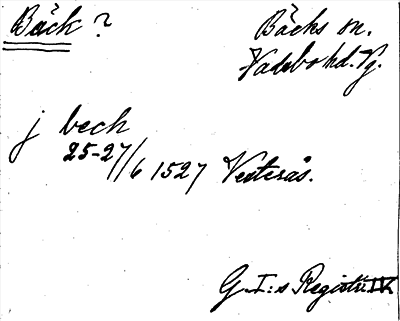 Bäck?
Bäcks sn.
Vadsbo hd. Vg.
j bech
25-27/6 1527 Vesterås.
G.I:s Registr. IV